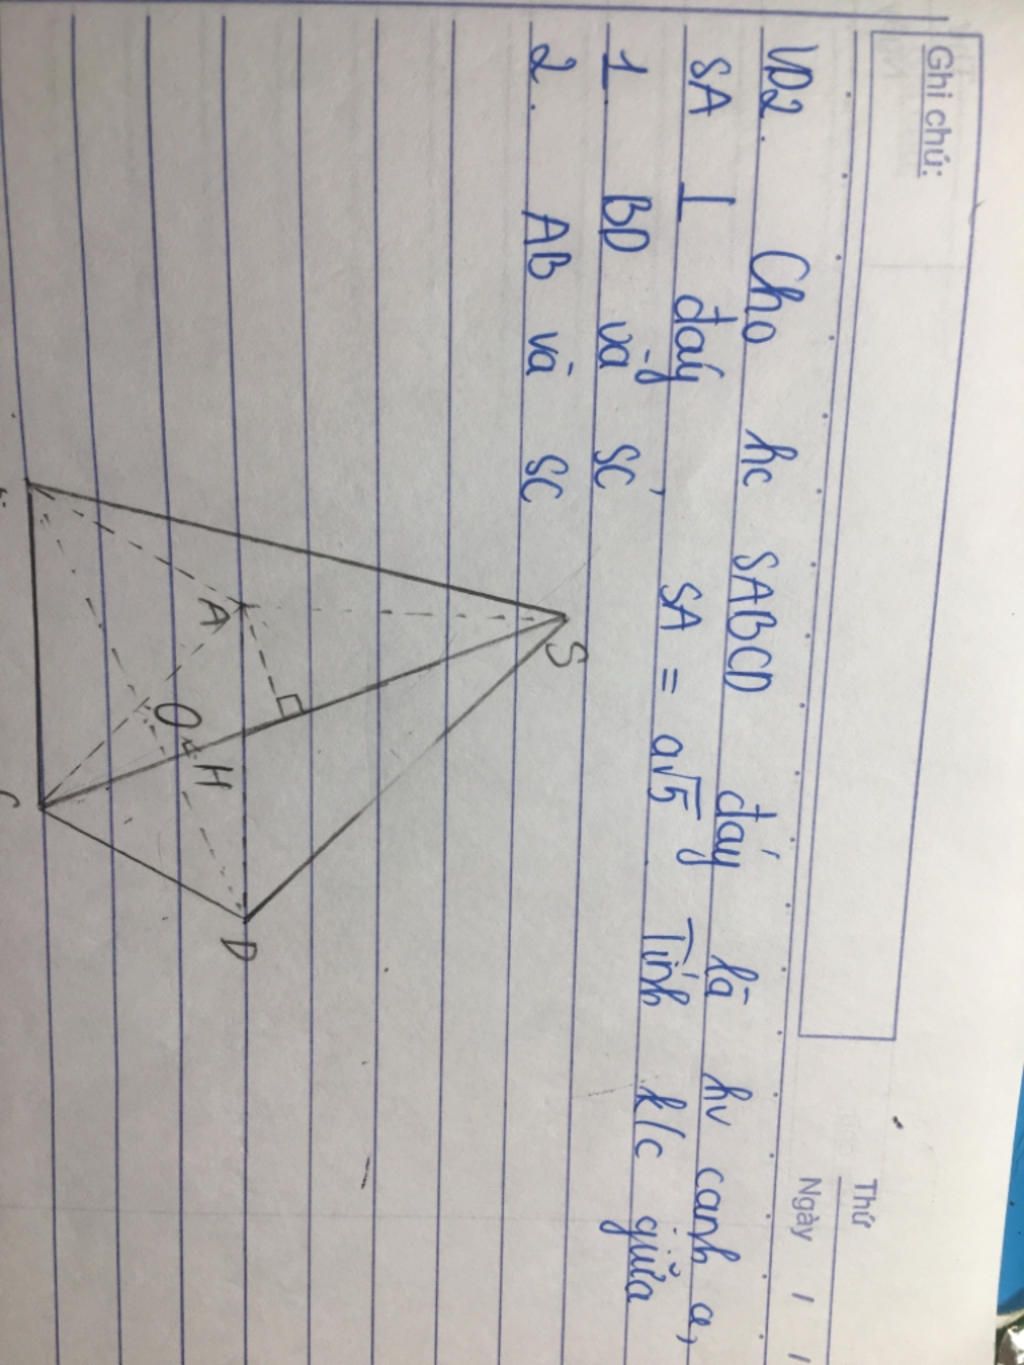 Ghi chú:
Thứ
Ngày / /
VD2. Cho hc SABCD đáy là hv cạnh a,
SA ⊥ đáy, SA = a√5 Tính k/c giữa
1. BD và SC
2. AB và SC
S
A
O
H
D
C